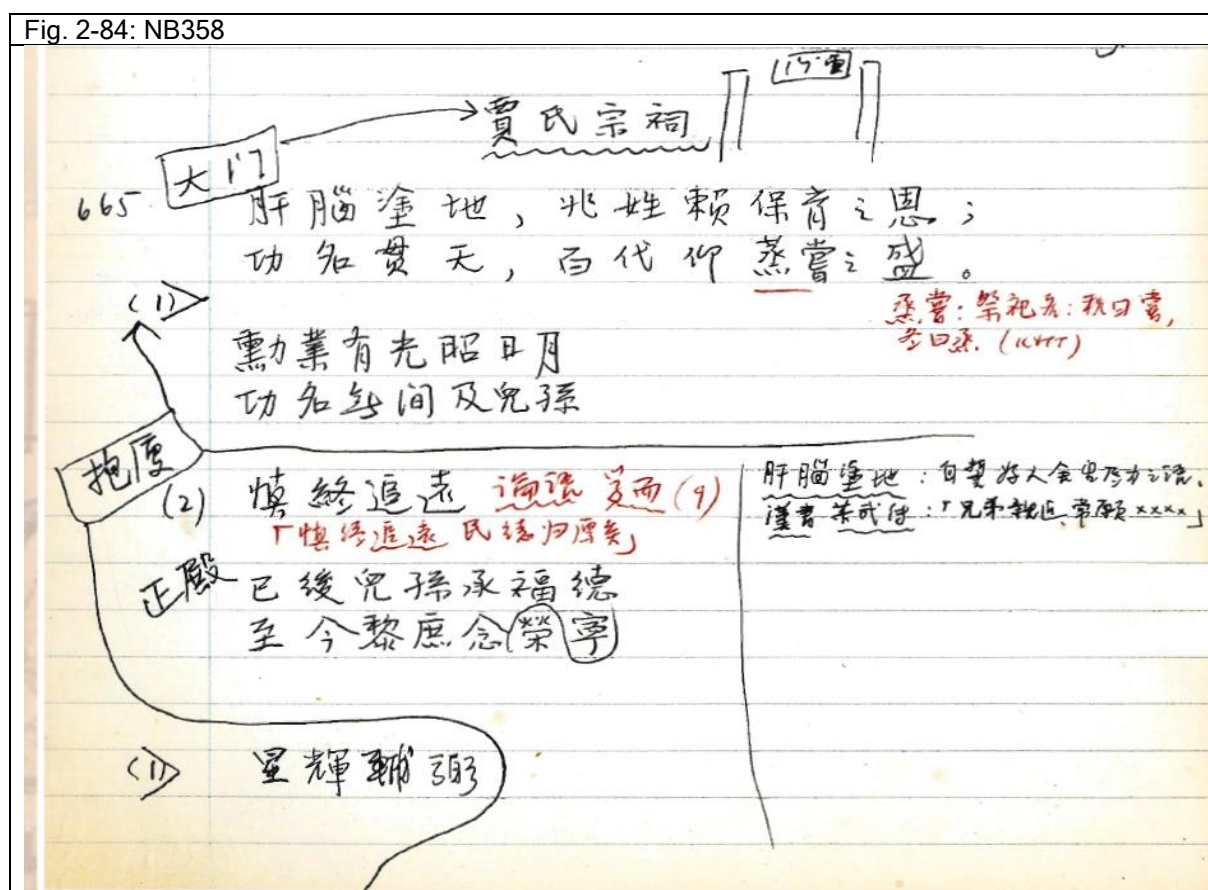 Fig. 2-84: NB358
賈氏宗祠
大门
665 肝腦塗地，兆姓賴保育之恩；
功名貫天，百代仰蒸嘗之盛。
蒸嘗：祭祀名：秋曰嘗,
冬曰蒸.
(1)
勳業有光昭日月
功名無间及兒孫
抱厦
(2) 慎終追遠 论语 学而 (9)
「慎终追远 民德归厚矣」
肝腦塗地：
漢書 苏武传：「兄弟親近,常願××××」
正殿 已後兒孫承福德
至今黎庶念榮寧
(1) 星輝輔弼